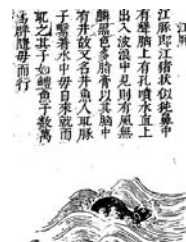 江豚
江豚即江豬狀似㹠鼻中
有聲腦上有孔噴水直上
出入波浪中見則有風無
鱗黑色多脂膏以其腦中
有井故又名井魚人取豚
子繫著水中母自來就而
取之其子如鱧魚子數萬
爲群隨母而行